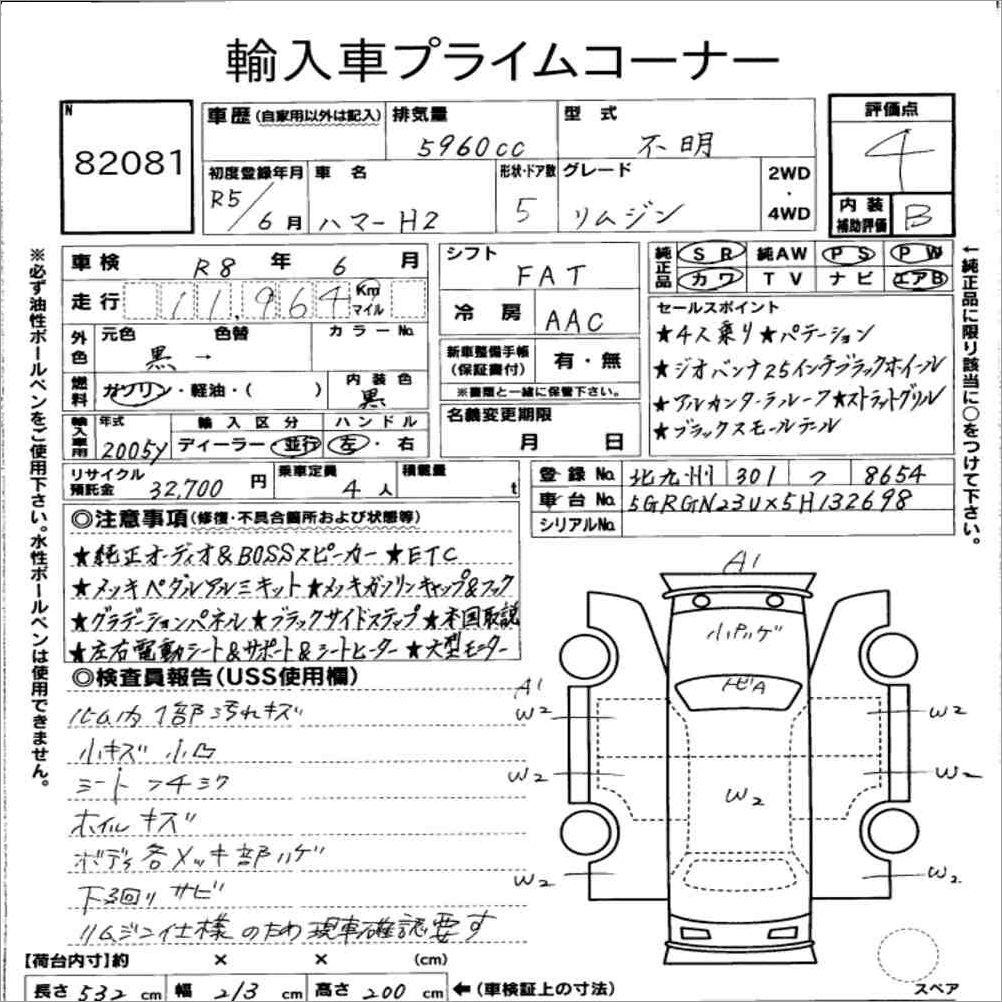 輸入車プライムコーナー
N
82081
車歴 (自家用以外は記入) 排気量 5960cc 型式 不明
評価点 4
初度登録年月 R5/6月 車名 ハマーH2 形状・ドア数 5 グレード リムジン 2WD・4WD
内装補助評価 B
車検 R8年 6月
走行 11,964 Km マイル
シフト FAT
純正品 SR 純AW PS PW
カワ TV ナビ エアB
冷房 AAC
外色 元色 黒 → 色替 カラーNo.
新車整備手帳(保証書付) 有・無
※書類と一緒に保管下さい。
燃料 ガソリン・軽油・( ) 内装色 黒
名義変更期限 月 日
セールスポイント
★4人乗り★パテーション
★ジオバンナ25インチブラックホイール
★アルカンターラルーフ★ストラットグリル
★ブラックスモールテール
輸入車用 年式 2005y 輸入区分 ディーラー・並行 ハンドル 左・右
リサイクル預託金 32,700円 乗車定員 4人 積載量 t
登録No. 北九州 301 つ 8654
車台No. 5GRGN23U×5H132698
シリアルNo.
◎注意事項(修復・不具合箇所および状態等)
★純正オーディオ&BOSSスピーカー★ETC
★メッキペダルアルミキット★メッキガソリンキャップ&フック
★グラデーションパネル★ブラックサイドステップ★本国取説
★左右電動シート&サポート&シートヒーター★大型モニター
◎検査員報告(USS使用欄)
ルム内 1部汚れキズ
小キズ 小凸
シート フチミク
ホイルキズ
ボディ各メッキ部ハゲ
下廻りサビ
リムジン仕様のため現車確認要す
A1
小パハゲ
トビA
A1
W2
W2
W2
W2
W2
W2
W2
【荷台内寸】約 × × (cm)
長さ 532 cm 幅 213 cm 高さ 200 cm ←(車検証上の寸法)
スペア
※必ず油性ボールペンをご使用下さい。水性ボールペンは使用できません。
←純正品に限り該当に○をつけて下さい。